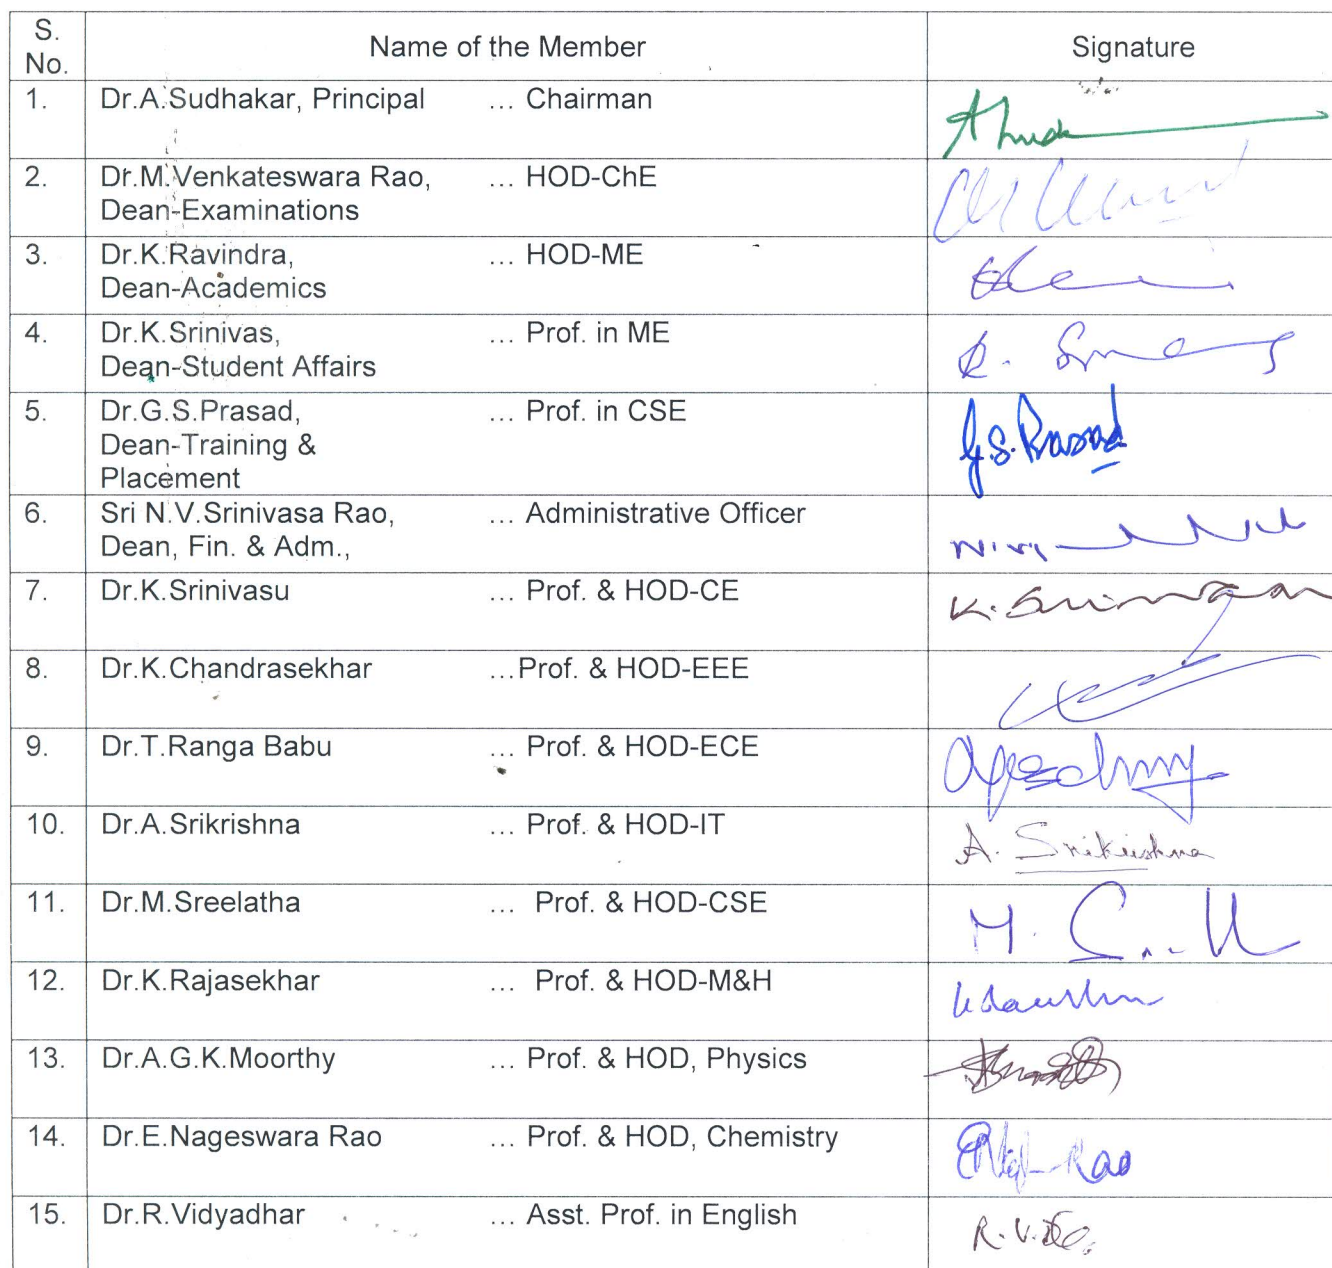 S.
No.
Name of the Member
Signature
1. Dr.A.Sudhakar, Principal ... Chairman
2. Dr.M.Venkateswara Rao, ... HOD-ChE
Dean-Examinations
3. Dr.K.Ravindra, ... HOD-ME
Dean-Academics
4. Dr.K.Srinivas, ... Prof. in ME
Dean-Student Affairs
5. Dr.G.S.Prasad, ... Prof. in CSE G.S.Prasad
Dean-Training &
Placement
6. Sri N.V.Srinivasa Rao, ... Administrative Officer
Dean, Fin. & Adm.,
7. Dr.K.Srinivasu ... Prof. & HOD-CE
8. Dr.K.Chandrasekhar ...Prof. & HOD-EEE
9. Dr.T.Ranga Babu ... Prof. & HOD-ECE
10. Dr.A.Srikrishna ... Prof. & HOD-IT A. Srikrishna
11. Dr.M.Sreelatha ... Prof. & HOD-CSE
12. Dr.K.Rajasekhar ... Prof. & HOD-M&H
13. Dr.A.G.K.Moorthy ... Prof. & HOD, Physics
14. Dr.E.Nageswara Rao ... Prof. & HOD, Chemistry Rao
15. Dr.R.Vidyadhar ... Asst. Prof. in English